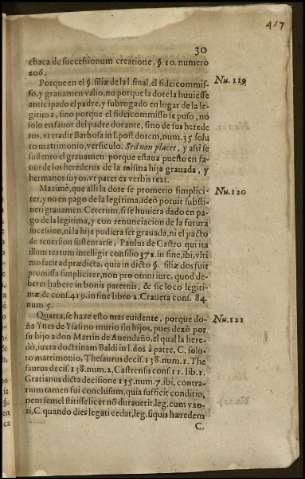 417
30
chaca de successionum creatione. §. 10. numero
206.
Porque en el §. filiæ de la l. final. el fideicommis-
so, y grauamen valio, no porque la dote la huuiesse
anticipado el padre, y subrogado en lugar de la le-
gitima, sino porque el fideicommisso se puso, no
solo en fauor del padre dotante, sino de sus herede
ros, vt tradit Barbosa in l. post dotem, num. 35. solu
to matrimonio, versiculo. Sed non placet, y assi se
sustentò el grauamen porque estaua puesto en fa-
uor de los herederos de la misma hija grauada, y
hermanos suyos. vt patet ex verbis text.
Nu. 119
Maximè, que alli la dote se prometio simplici-
ter, y no en pago de la legitima, ideò potuit substi-
neri grauamen. Ceterum, si se huuiera dado en pa-
go de la legitima, y con renunciacion de la futura
sucession, ni la hija pudiera ser grauada, ni el pacto
de reuersion sustentarse, Paulus de Castro qui ita
illum textum intelligit consilio 372. in fine, ibi, vlti
mo facit ad prædicta, quia in dicto §. filiæ dos fuit
promissa simpliciter, non pro omni iure, quod de-
beret habere in bonis parentis, & sic loco legiti-
mæ & conf. 419. in fine libro 2. Crauera cons. 84.
num. 5.
Nu. 120
Quarta, se haze esto mas euidente, porque do-
ña Ynes de Ysasi no murio sin hijos, pues dexò por
su hijo a don Martin de Auendaño, el qual la here-
dò, iuxta doctrinam Baldi in l. dos à patre, C. solu-
to matrimonio, Thesaurus decis. 138. num. 1. The
saurus decis. 138. num. 2. Castrensis cons 11. lib. 1.
Gratianus dicta decisione 135. num. 7. ibi, contra-
rium tamen fuit conclusum, quia sufficit conditio,
nem semel stitisse licet nõ durauerit. leg. cum vxo-
ri, C. quando dies legati cedat, leg. si quis hæredem
Nu. 121
C.